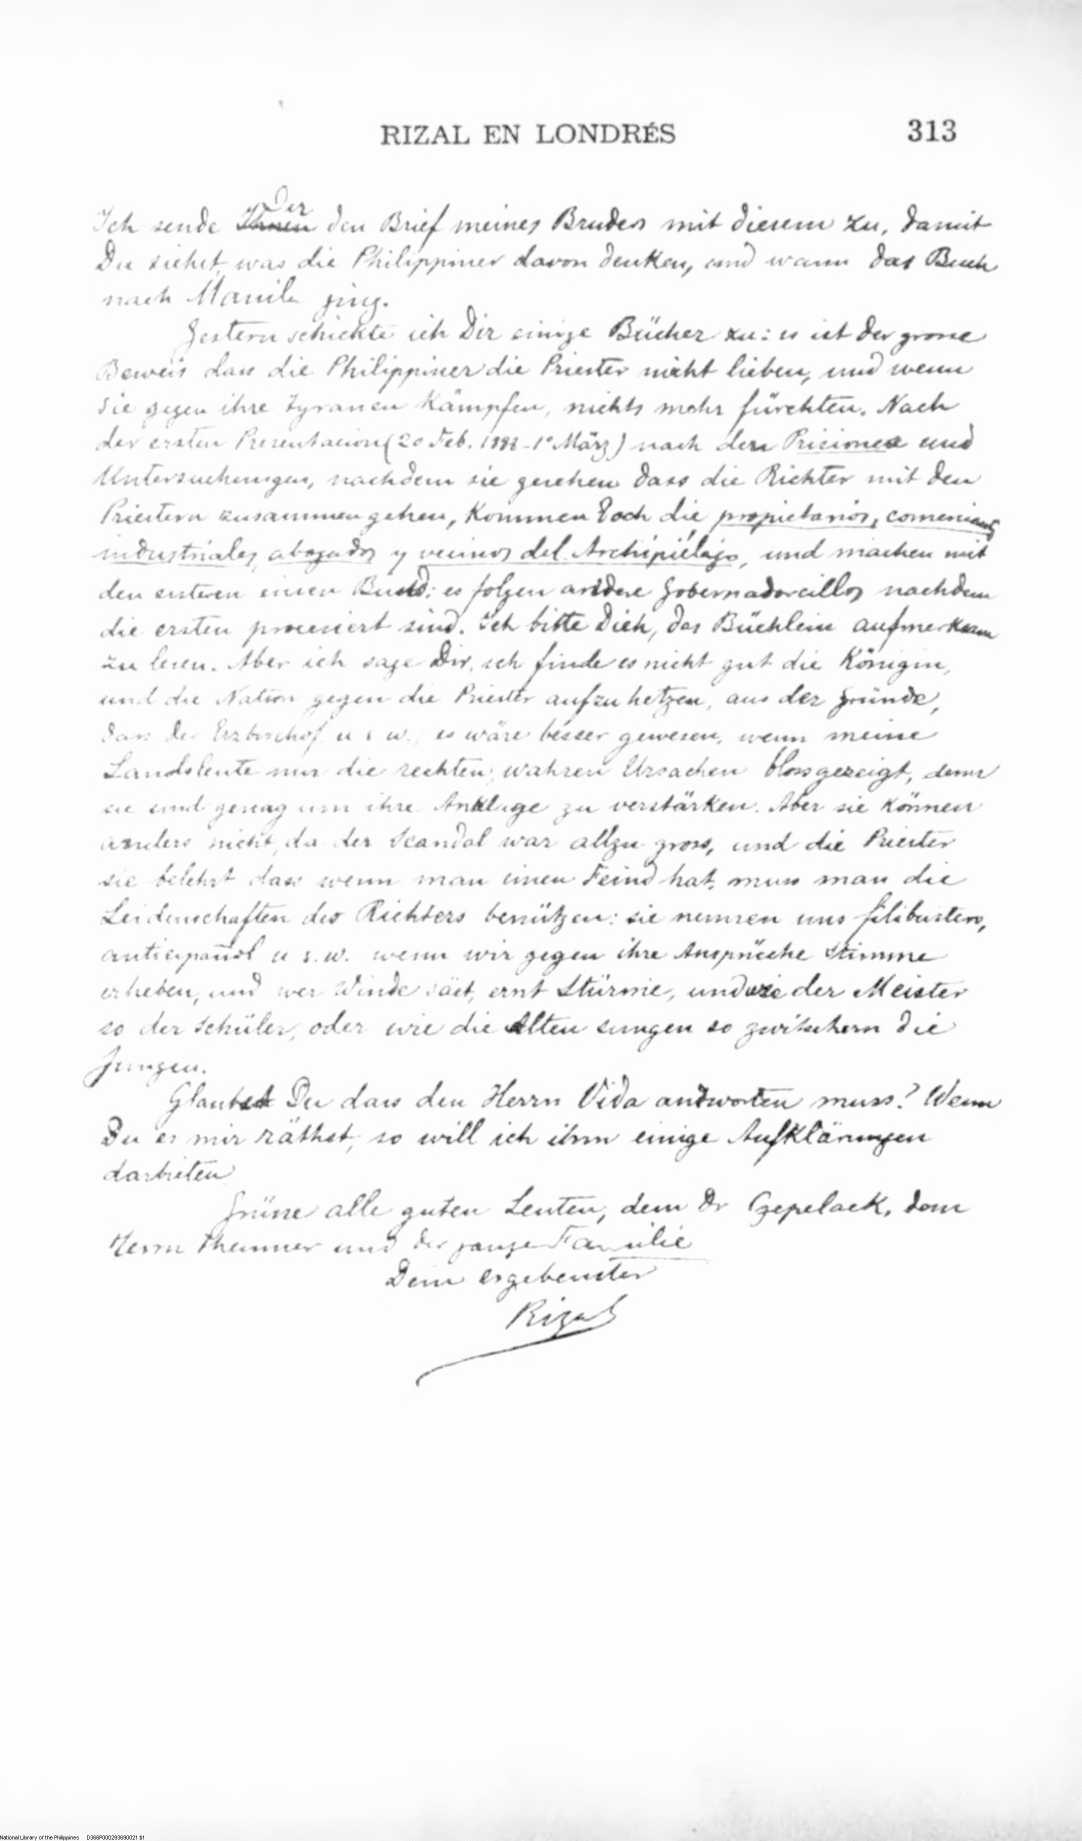 RIZAL EN LONDRÉS 313
Der
Ich sende Ihnen den Brief meines Bruders mit diesem zu, damit
Du siehst, was die Philippiner davon denken, und wann das Buch
nach Manila ging.
Gestern schickte ich Dir einige Bücher zu: es ist der grosse
Beweis dass die Philippiner die Priester nicht lieben, und wenn
sie gegen ihre Tyranen kämpfen, nichts mehr fürchten. Nach
der ersten Presentacion (20 Feb. 1888 - 1º März) nach den Prisiones und
Untersuchungen, nachdem sie gesehen dass die Richter mit den
Priestern zusammen gehen, kommen doch die propietarios, comerciantes
industriales, abogados y vecinos del Archipiélago, und machen mit
den ersteren einen Bund: es folgen andere Gobernadorcillos nachdem
die ersten processiert sind. Ich bitte Dich, das Büchlein aufmerksam
zu lesen. Aber ich sage Dir, ich finde es nicht gut die Königin,
und die Nation gegen die Priester aufzuhetzen, aus der Gründe,
dass der Erzbischof u s w., es wäre besser gewesen, wenn meine
Landsleute nur die rechten, wahren Ursachen blossgezeigt, denn
sie sind genug um ihre Anklage zu verstärken. Aber sie können
anders nicht, da der Scandal war allzu gross, und die Priester
sie belehrt dass wenn man einen Feind hat, muss man die
Leidenschaften des Richters benützen: sie nennen uns filibusters,
antiespañol u s. w. wenn wir gegen ihre Ansprüche Stimme
erheben, und wer Winde säet, ernt Stürme, und wie der Meister
so der Schüler, oder wie die Alten sungen so zwitschern die
Jungen.
Glaubst Du dass den Herrn Vida antworten muss? Wenn
Du es mir räthst, so will ich ihm einige Aufklärungen
darbieten
Grüsse alle guten Leuten, dem Dr Czepelack, dem
Herrn und der ganze Familie
Dein ergebenster
Rizal
National Library of the Philippines